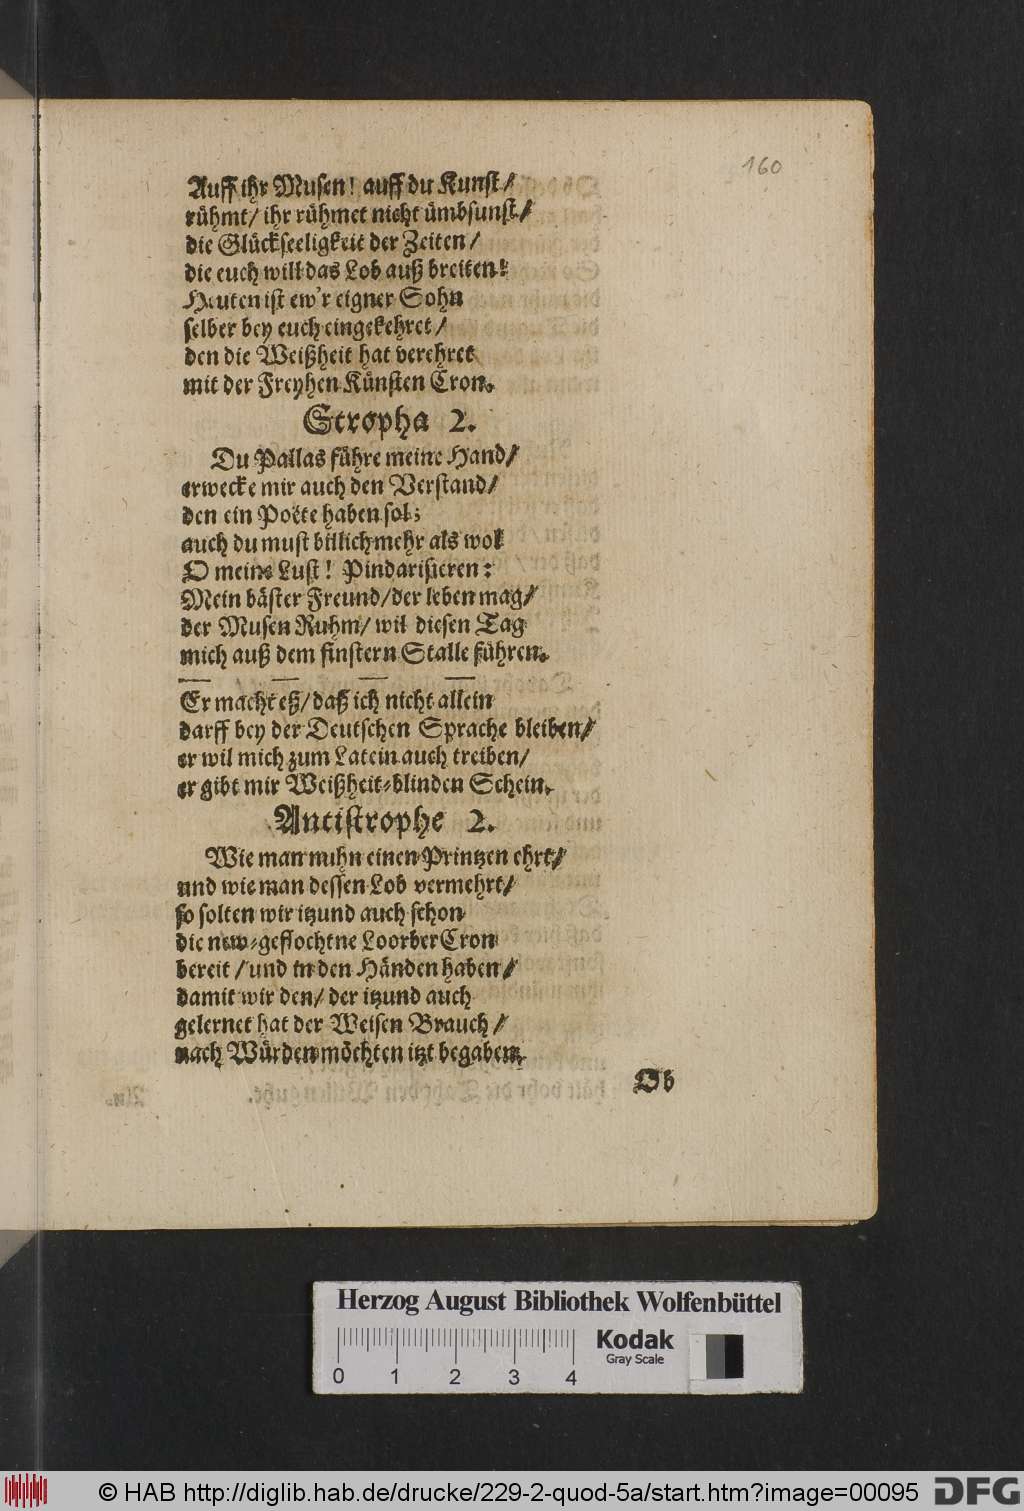 160
Auff ihr Musen! auff du Kunst/
rühmt/ ihr rühmet nicht ümbsunst/
die Glückseeligkeit der Zeiten/
die euch will das Lob auß breiten!
Heuten ist ew'r eigner Sohn
selber bey euch eingekehret/
den die Weißheit hat verehret
mit der Freyhen Künsten Cron.
Stropha 2.
Du Pallas führe meine Hand/
erwecke mir auch den Verstand/
den ein Poëte haben sol;
auch du must billich mehr als wol
O meine Lust! Pindarisieren:
Mein bäster Freund/ der leben mag/
der Musen Ruhm/ wil diesen Tag
mich auß dem finstern Stalle führen.
Er macht eß/ daß ich nicht allein
darff bey der Deutschen Sprache bleiben/
er wil mich zum Latein auch treiben/
er gibt mir Weißheit-blinden Schein.
Antistrophe 2.
Wie man nuhn einen Printzen ehrt/
und wie man dessen Lob vermehrt/
so solten wir itzund auch schon
die new-geflochtne Loorber Cron
bereit / und in den Händen haben/
damit wir den/ der itzund auch
gelernet hat der Weisen Brauch/
nach Würden möchten itzt begaben.
Ob
Herzog August Bibliothek Wolfenbüttel
Kodak
Gray Scale
0 1 2 3 4
© HAB http://diglib.hab.de/drucke/229-2-quod-5a/start.htm?image=00095
DFG